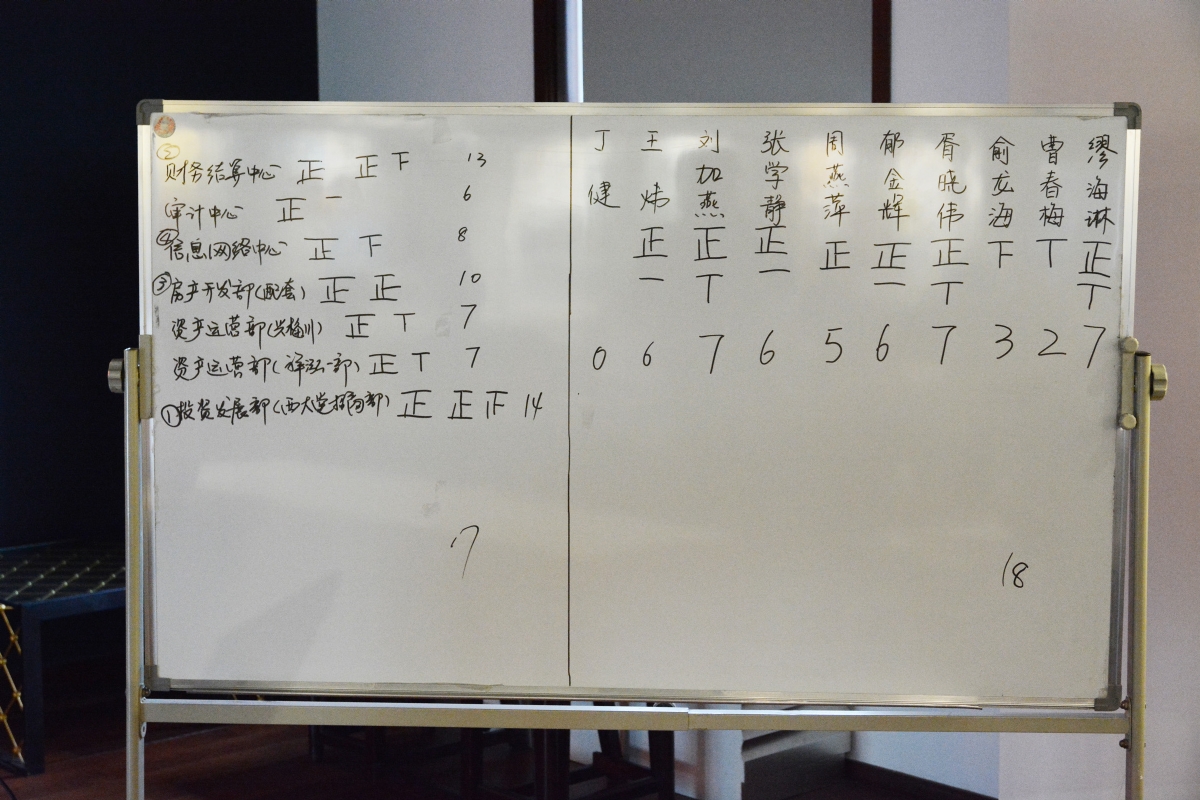 ② 财务结算中心 正 正 下 13
审计中心 正 一 6
④ 信息网络中心 正 下 8
③ 房产开发部(配套) 正 正 10
资产运营部( ) 正 丅 7
资产运营部( 一部) 正 丅 7
① 投资发展部(西大堂招商部) 正 正 14
7
丁健 0
王炜 正 一 6
刘加燕 正 丅 7
张学静 正 一 6
周燕萍 正 5
郁金辉 正 一 6
胥晓伟 正 丅 7
俞龙海 下 3
曹春梅 丅 2
缪海琳 正 丅 7
18